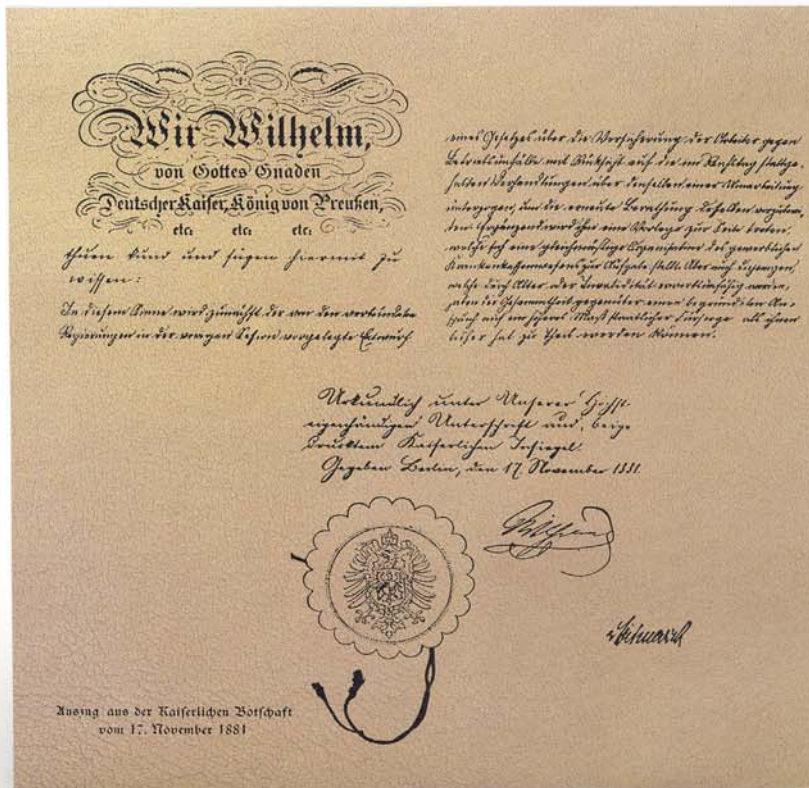 Wir Wilhelm,
von Gottes Gnaden
Deutscher Kaiser, König von Preußen,
etc: etc: etc:
thuen kund und fügen hiermit zu
wissen:
In diesem Sinne wird zunächst der von den verbündeten
Regierungen in der vorigen Session vorgelegte Entwurf
eines Gesetzes über die Versicherung der Arbeiter gegen
Betriebsunfälle mit Rücksicht auf die im Reichstag stattge-
habten Verhandlungen über denselben einer Umarbeitung
unterzogen, um die erneute Berathung desselben vorzuberei-
ten. Ergänzend wird ihm eine Vorlage zur Seite treten,
welche sich eine gleichmäßige Organisation des gewerblichen
Krankenkassenwesens zur Aufgabe stellt. Aber auch diejenigen,
welche durch Alter oder Invalidität erwerbsunfähig werden,
haben der Gesamtheit gegenüber einen begründeten An-
spruch auf ein höheres Maß staatlicher Fürsorge als ihnen
bisher hat zu Theil werden können.
Urkundlich unter Unserer Höchst-
eigenhändigen Unterschrift und beige-
drucktem Kaiserlichen Insiegel.
Gegeben Berlin, den 17. November 1881.
Wilhelm
v Bismarck
Auszug aus der Kaiserlichen Botschaft
vom 17. November 1881